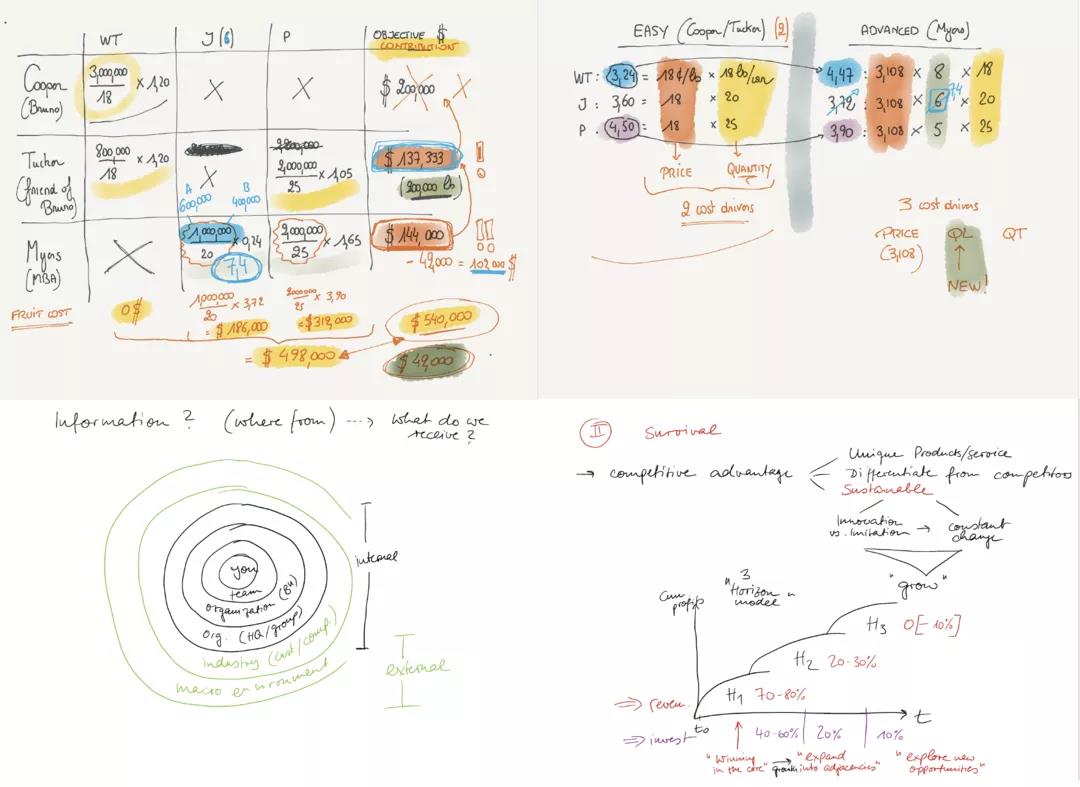 WT
J (6)
P
OBJECTIVE $
CONTRIBUTION
Cooper
(Bruno)
3,000,000
18
× 1,20
X
X
$ 200,000
X
Tucker
(friend of
Bruno)
800 000
18
× 1,20
X
A
600,000
B
400,000
2,000,000
25
× 1,05
$ 137,333
!
200,000 lb
Myers
(MBA)
X
1,000,000
20
× 0,24
7,4
2,000,000
25
× 1,65
$ 144,000
!!
- 42,000 = 102,000 $
FRUIT COST
0 $
1,000,000
20
× 3,72
= $ 186,000
2000,000
25
× 3,90
= $ 312,000
$ 540,000
= $ 498,000
$ 42,000
EASY (Cooper/Tucker) (2)
WT: 3,24 = 18 ¢/lb × 18 lb/can
J : 3,60 = 18 × 20
P . 4,50 = 18 × 25
PRICE
QUANTITY
2 cost drivers
ADVANCED (Myers)
4,47 : 3,108 × 8 × 18
3,72 : 3,108 × 6 × 20
7,4
3,90 : 3,108 × 5 × 25
3 cost drivers
PRICE
(3,108)
QL
QT
NEW!
Information ? (where from) ---> What do we
receive ?
you
team
organization (BU)
org. (HQ/group)
industry (cust/comp.)
macro environment
internal
external
II Survival
→ competitive advantage
Unique Products/service
Differentiate from competitors
Sustainable
Innovation
vs. Imitation
→ constant
change
"grow"
Cum
profit
3
"Horizon"
model
H3 0[-10%]
H2 20-30%
H1 70-80%
⇒ reven.
t0
t
⇒ invest
40-60%
20%
10%
"Winning
in the core"
growth
"expand
into adjacencies"
"explore new
opportunities"